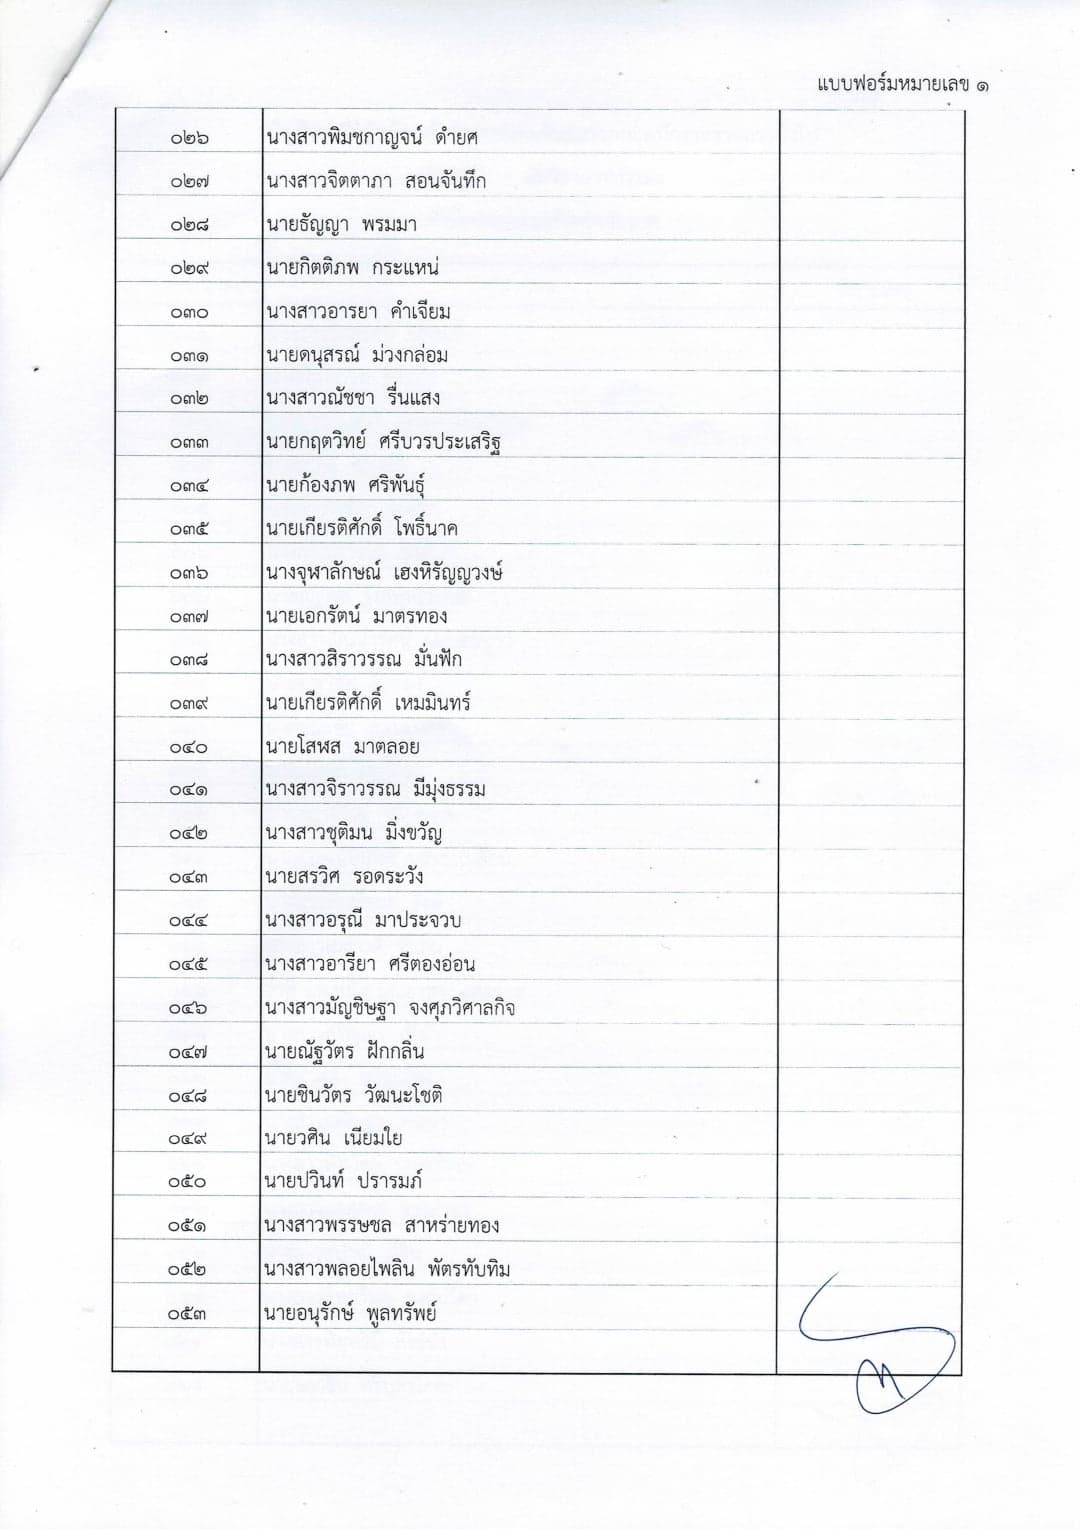 แบบฟอร์มหมายเลข ๑
๐๒๖ นางสาวพิมชกาญจน์ ดำยศ
๐๒๗ นางสาวจิตตาภา สอนจันทึก
๐๒๘ นายธัญญา พรมมา
๐๒๙ นายกิตติภพ กระแหน่
๐๓๐ นางสาวอารยา คำเจียม
๐๓๑ นายดนุสรณ์ ม่วงกล่อม
๐๓๒ นางสาวณัชชา รื่นแสง
๐๓๓ นายกฤตวิทย์ ศรีบวรประเสริฐ
๐๓๔ นายก้องภพ ศริพันธุ์
๐๓๕ นายเกียรติศักดิ์ โพธิ์นาค
๐๓๖ นางจุฬาลักษณ์ เฮงหิรัญญวงษ์
๐๓๗ นายเอกรัตน์ มาตรทอง
๐๓๘ นางสาวสิราวรรณ มั่นฟัก
๐๓๙ นายเกียรติศักดิ์ เหมมินทร์
๐๔๐ นายโสฬส มาตลอย
๐๔๑ นางสาวจิราวรรณ มีมุ่งธรรม
๐๔๒ นางสาวชุติมน มิ่งขวัญ
๐๔๓ นายสรวิศ รอดระวัง
๐๔๔ นางสาวอรุณี มาประจวบ
๐๔๕ นางสาวอารียา ศรีตองอ่อน
๐๔๖ นางสาวมัญชิษฐา จงศุภวิศาลกิจ
๐๔๗ นายณัฐวัตร ฝักกลิ่น
๐๔๘ นายชินวัตร วัฒนะโชติ
๐๔๙ นายวศิน เนียมใย
๐๕๐ นายปวินท์ ปรารมภ์
๐๕๑ นางสาวพรรษชล สาหร่ายทอง
๐๕๒ นางสาวพลอยไพลิน พัตรทับทิม
๐๕๓ นายอนุรักษ์ พูลทรัพย์